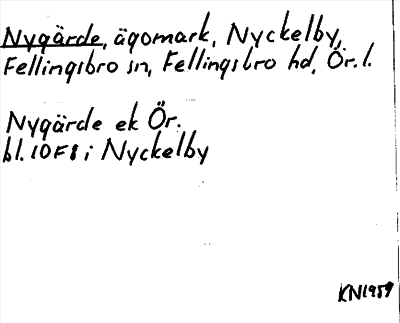 Nygärde, ägomark, Nyckelby,
Fellingsbro sn, Fellingsbro hd, Ör. l.
Nygärde ek Ör.
bl. 10F8 i Nyckelby
KN1959